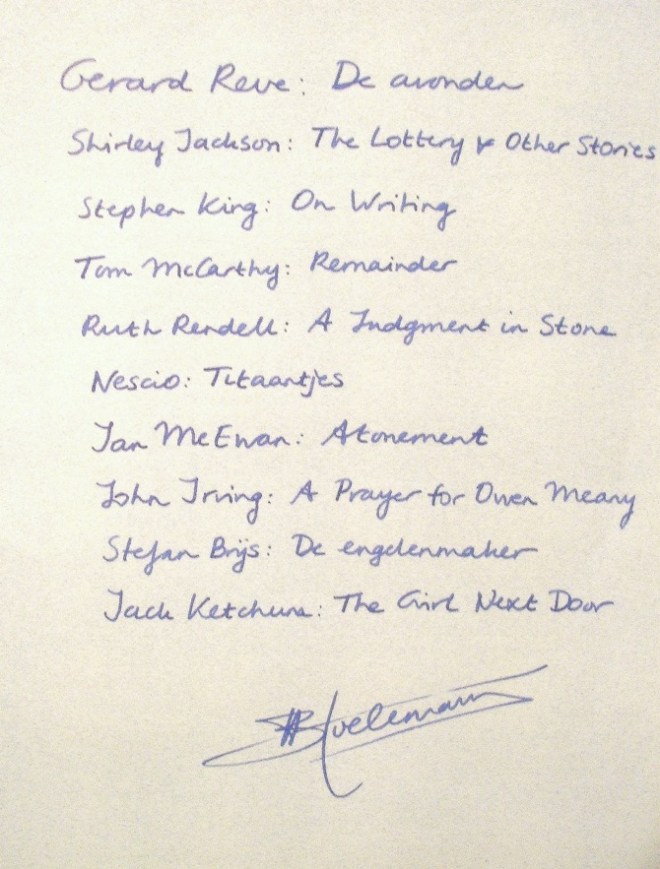 Gerard Reve: De avonden
Shirley Jackson: The Lottery & Other Stories
Stephen King: On Writing
Tom McCarthy: Remainder
Ruth Rendell: A Judgment in Stone
Nescio: Titaantjes
Ian McEwan: Atonement
John Irving: A Prayer for Owen Meany
Stefan Brijs: De engelenmaker
Jack Ketchum: The Girl Next Door